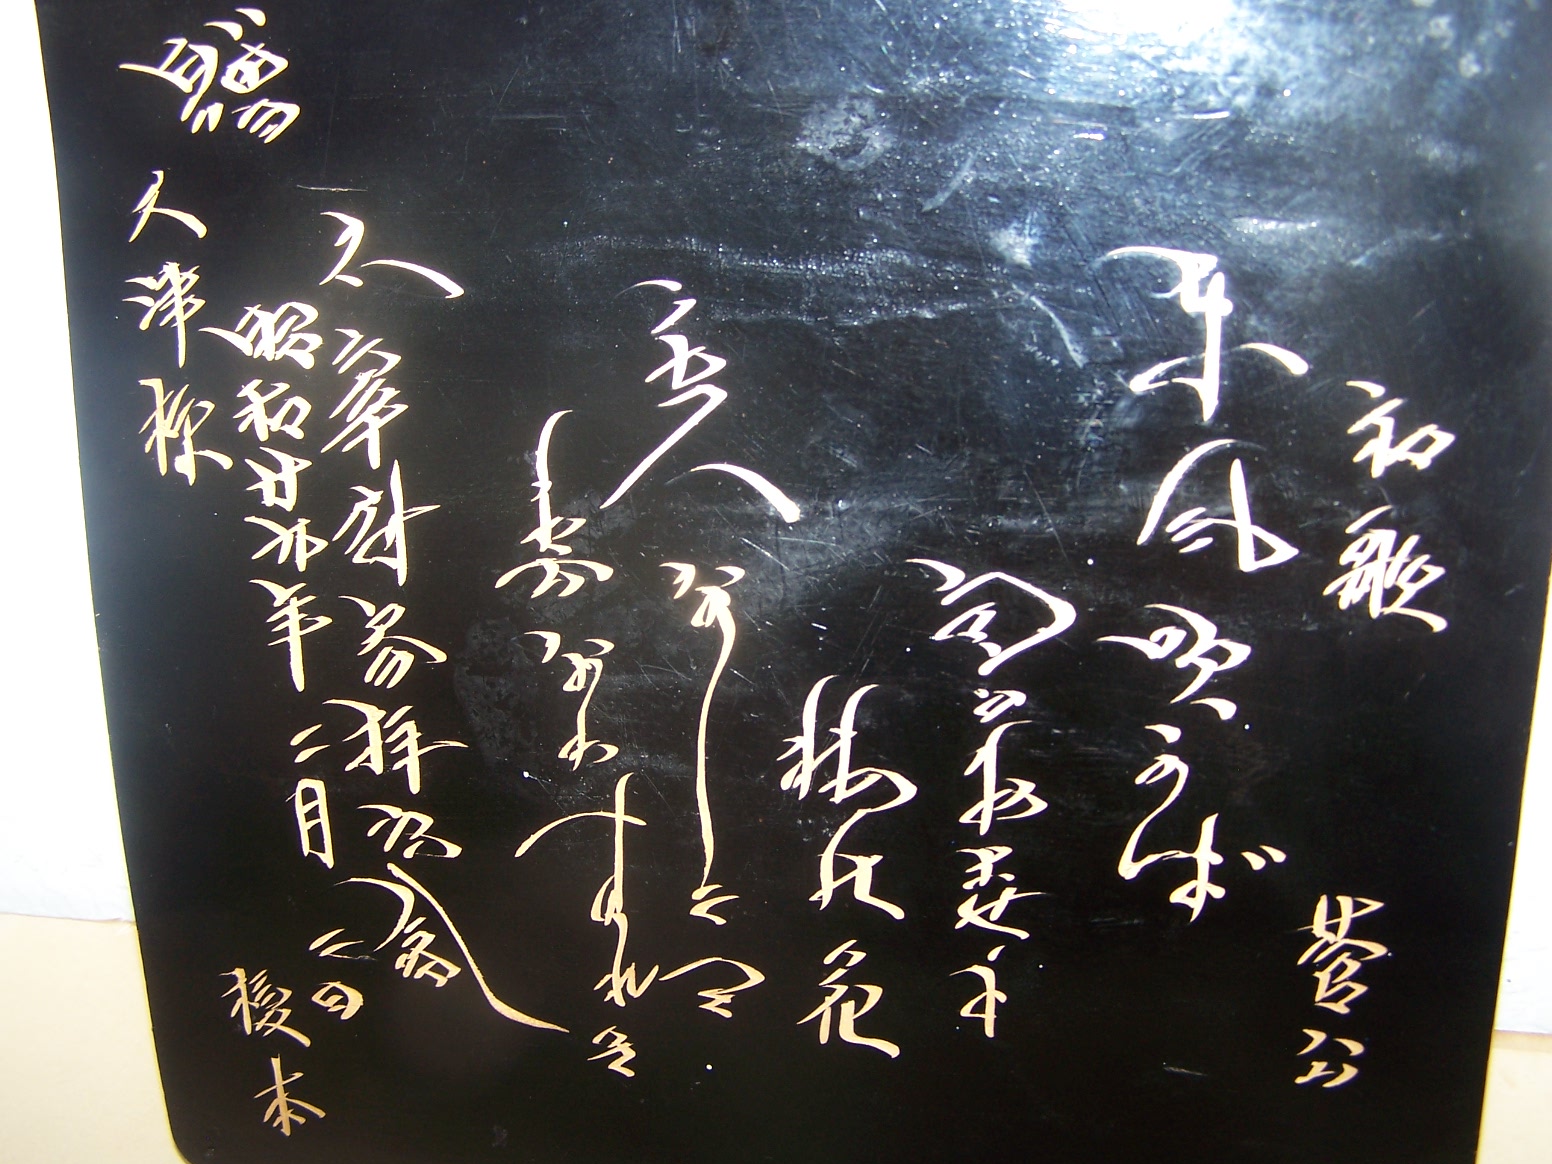 歌　菅公
東風吹かば
匂ひおこせよ
梅の花
主人なしとて
春なわすれそ
太宰府参拝記念
昭和廿九年二月　日
榎本
贈　久津様